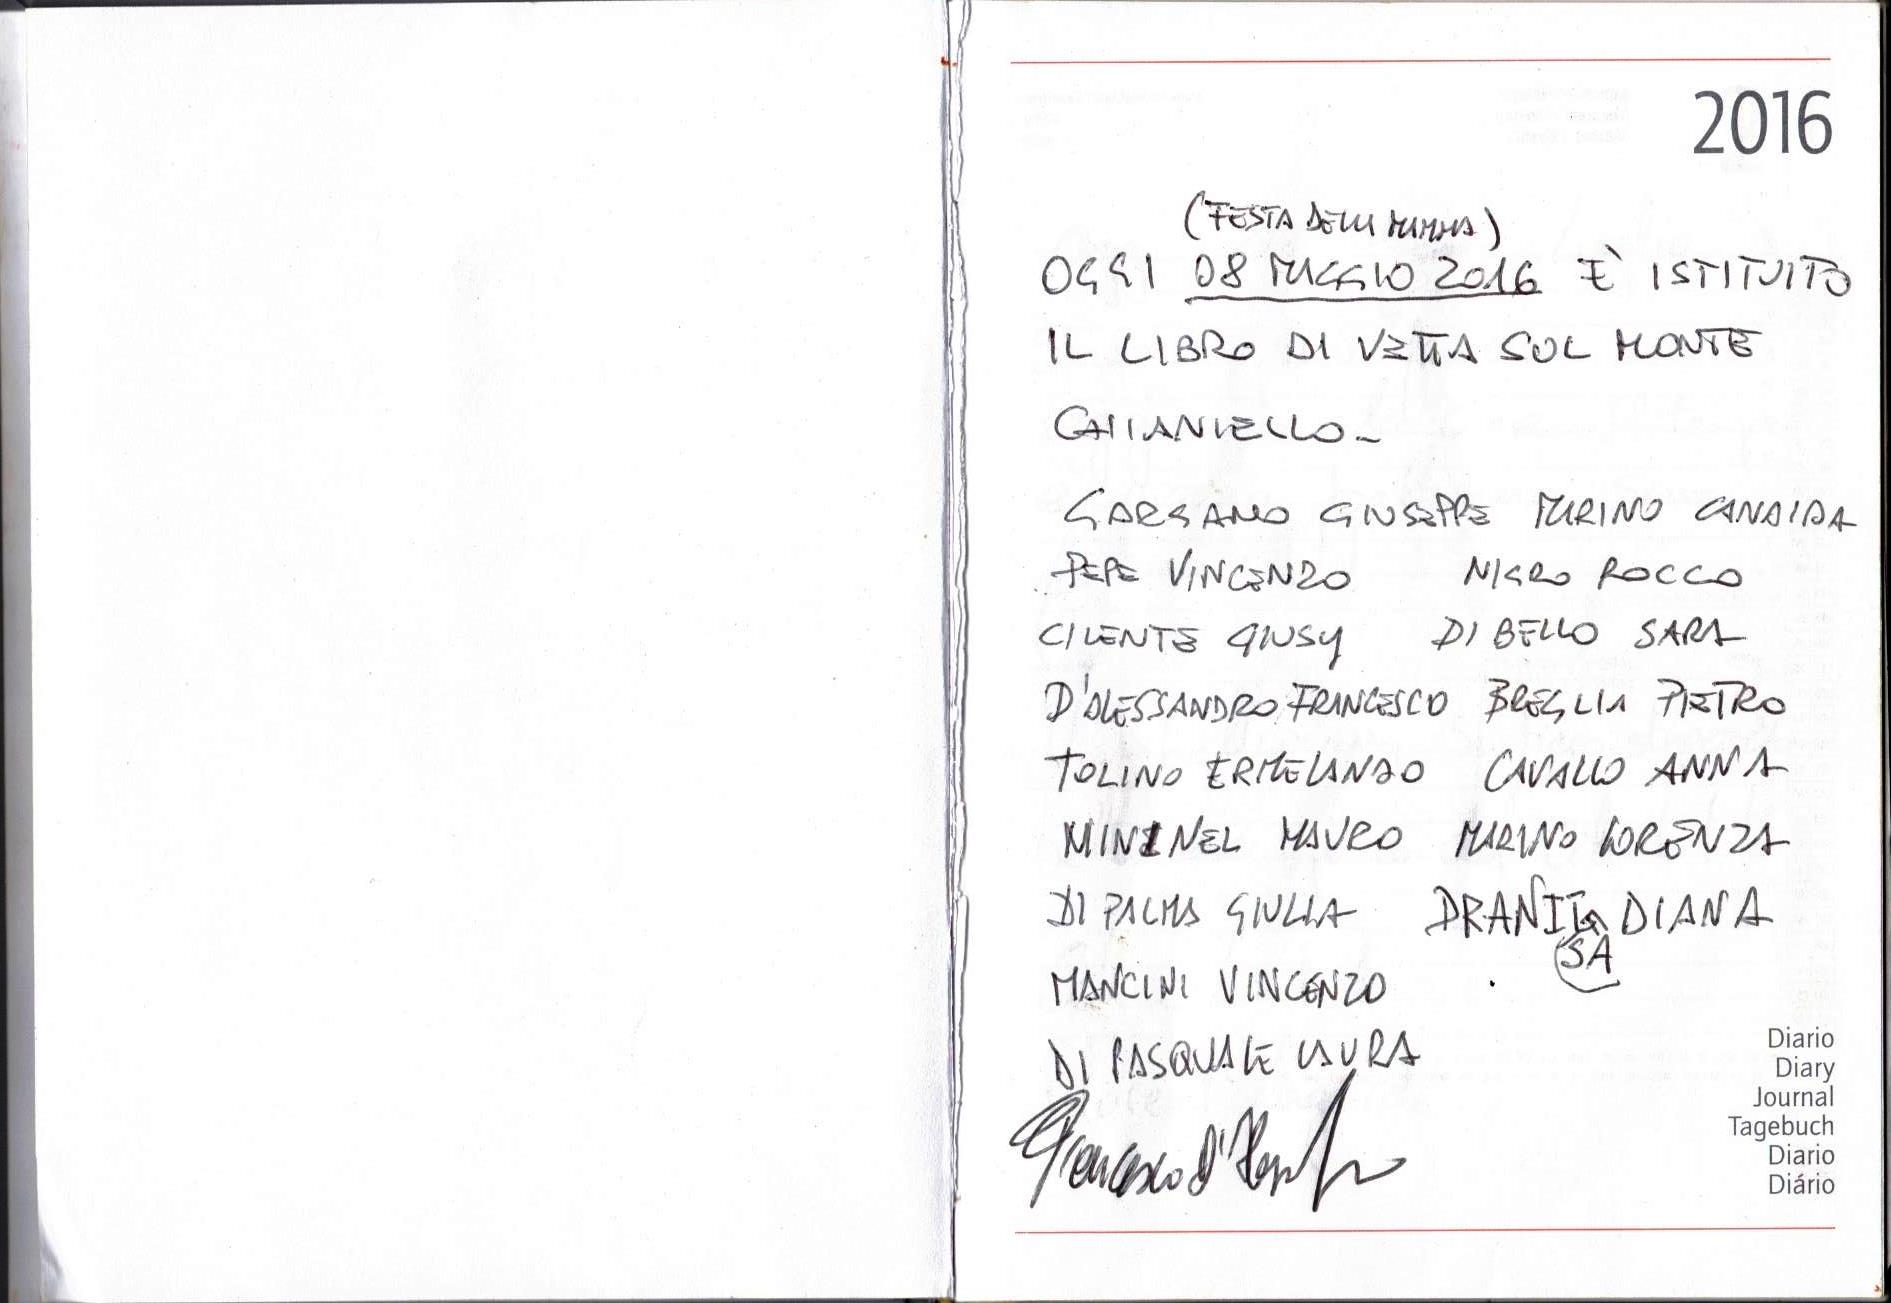 2016
(FESTA DELLA MAMMA)
OGGI 08 MAGGIO 2016 È ISTITUITO
IL LIBRO DI VETTA SUL MONTE
CHIANIELLO
GARGANO GIUSEPPE MARINO CANDIDA
PEPE VINCENZO NIGRO ROCCO
CILENTE GIUSY DI BELLO SARA
D'ALESSANDRO FRANCESCO BREGLIA PIETRO
TOLINO ERMELANDO CAVALLO ANNA
MININEL MAURO MARINO LORENZA
DI PALMA GIULIA DIANA
SA
MANCINI VINCENZO
DI PASQUALE LAURA
Francesco
Diario
Diary
Journal
Tagebuch
Diario
Diário